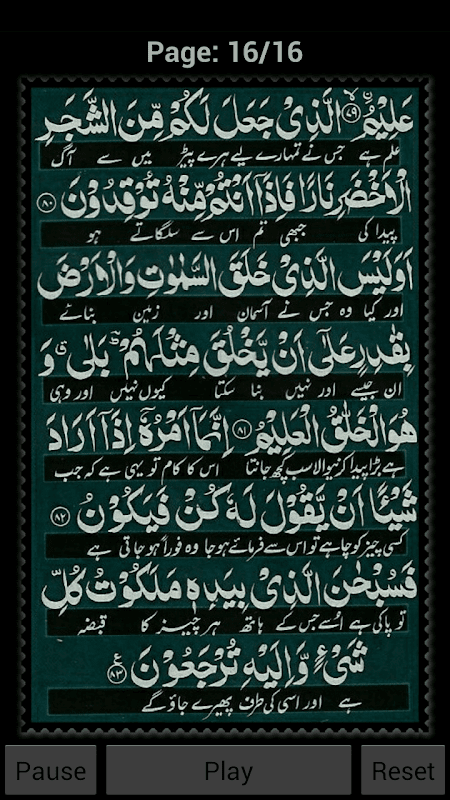 Page: 16/16
عَلِيْمُ ۙ﴿۷۹﴾ الَّذِىْ جَعَلَ لَكُمْ مِّنَ الشَّجَرِ
علم ہے جس نے تمہارے لیے ہرے پیڑ میں سے آگ
الْاَخْضَرِ نَارًا فَاِذَاۤ اَنْتُمْ مِّنْهُ تُوْقِدُوْنَ ﴿۸۰﴾
پیدا کی جبھی تم اس سے سلگاتے ہو
اَوَلَيْسَ الَّذِىْ خَلَقَ السَّمٰوٰتِ وَالْاَرْضَ
اور کیا وہ جس نے آسمان اور زمین بنائے
بِقٰدِرٍ عَلٰٓى اَنْ يَّخْلُقَ مِثْلَهُمْ ؕ بَلٰى ۗ وَ
ان جیسے اور نہیں بنا سکتا کیوں نہیں اور وہی
هُوَ الْخَلّٰقُ الْعَلِيْمُ ﴿۸۱﴾ اِنَّمَاۤ اَمْرُهٗۤ اِذَاۤ اَرَادَ
ہے بڑا پیدا کرنیوالا سب کچھ جانتا اس کا کام تو یہی ہے کہ جب
شَيْـًٔا اَنْ يَّقُوْلَ لَهٗ كُنْ فَيَكُوْنُ ﴿۸۲﴾
کسی چیز کو چاہے تو اس سے فرمائے ہو جا وہ فوراً ہو جاتی ہے
فَسُبْحٰنَ الَّذِىْ بِيَدِهٖ مَلَكُوْتُ كُلِّ
تو پاکی ہے اسے جس کے ہاتھ ہر چیز کا قبضہ
شَىْءٍ وَّاِلَيْهِ تُرْجَعُوْنَ ﴿۸۳﴾ ع
ہے اور اسی کی طرف پھیرے جاؤ گے
Pause Play Reset